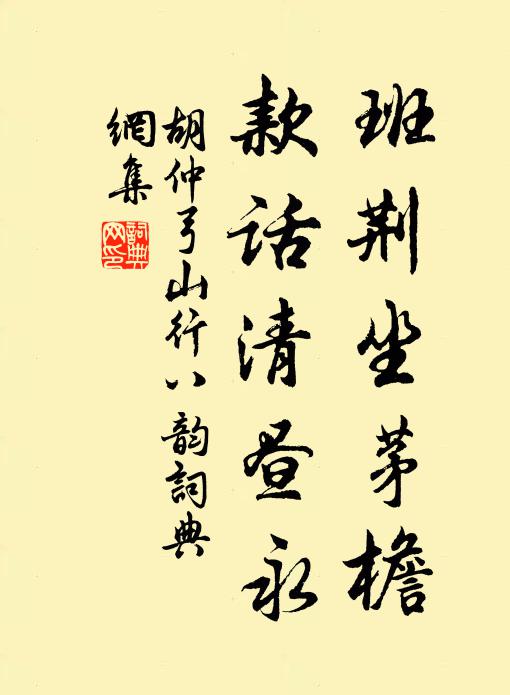 班荆坐茅檐
款话清昼永
胡仲弓山行八韵詞典
網集
詞典
网印